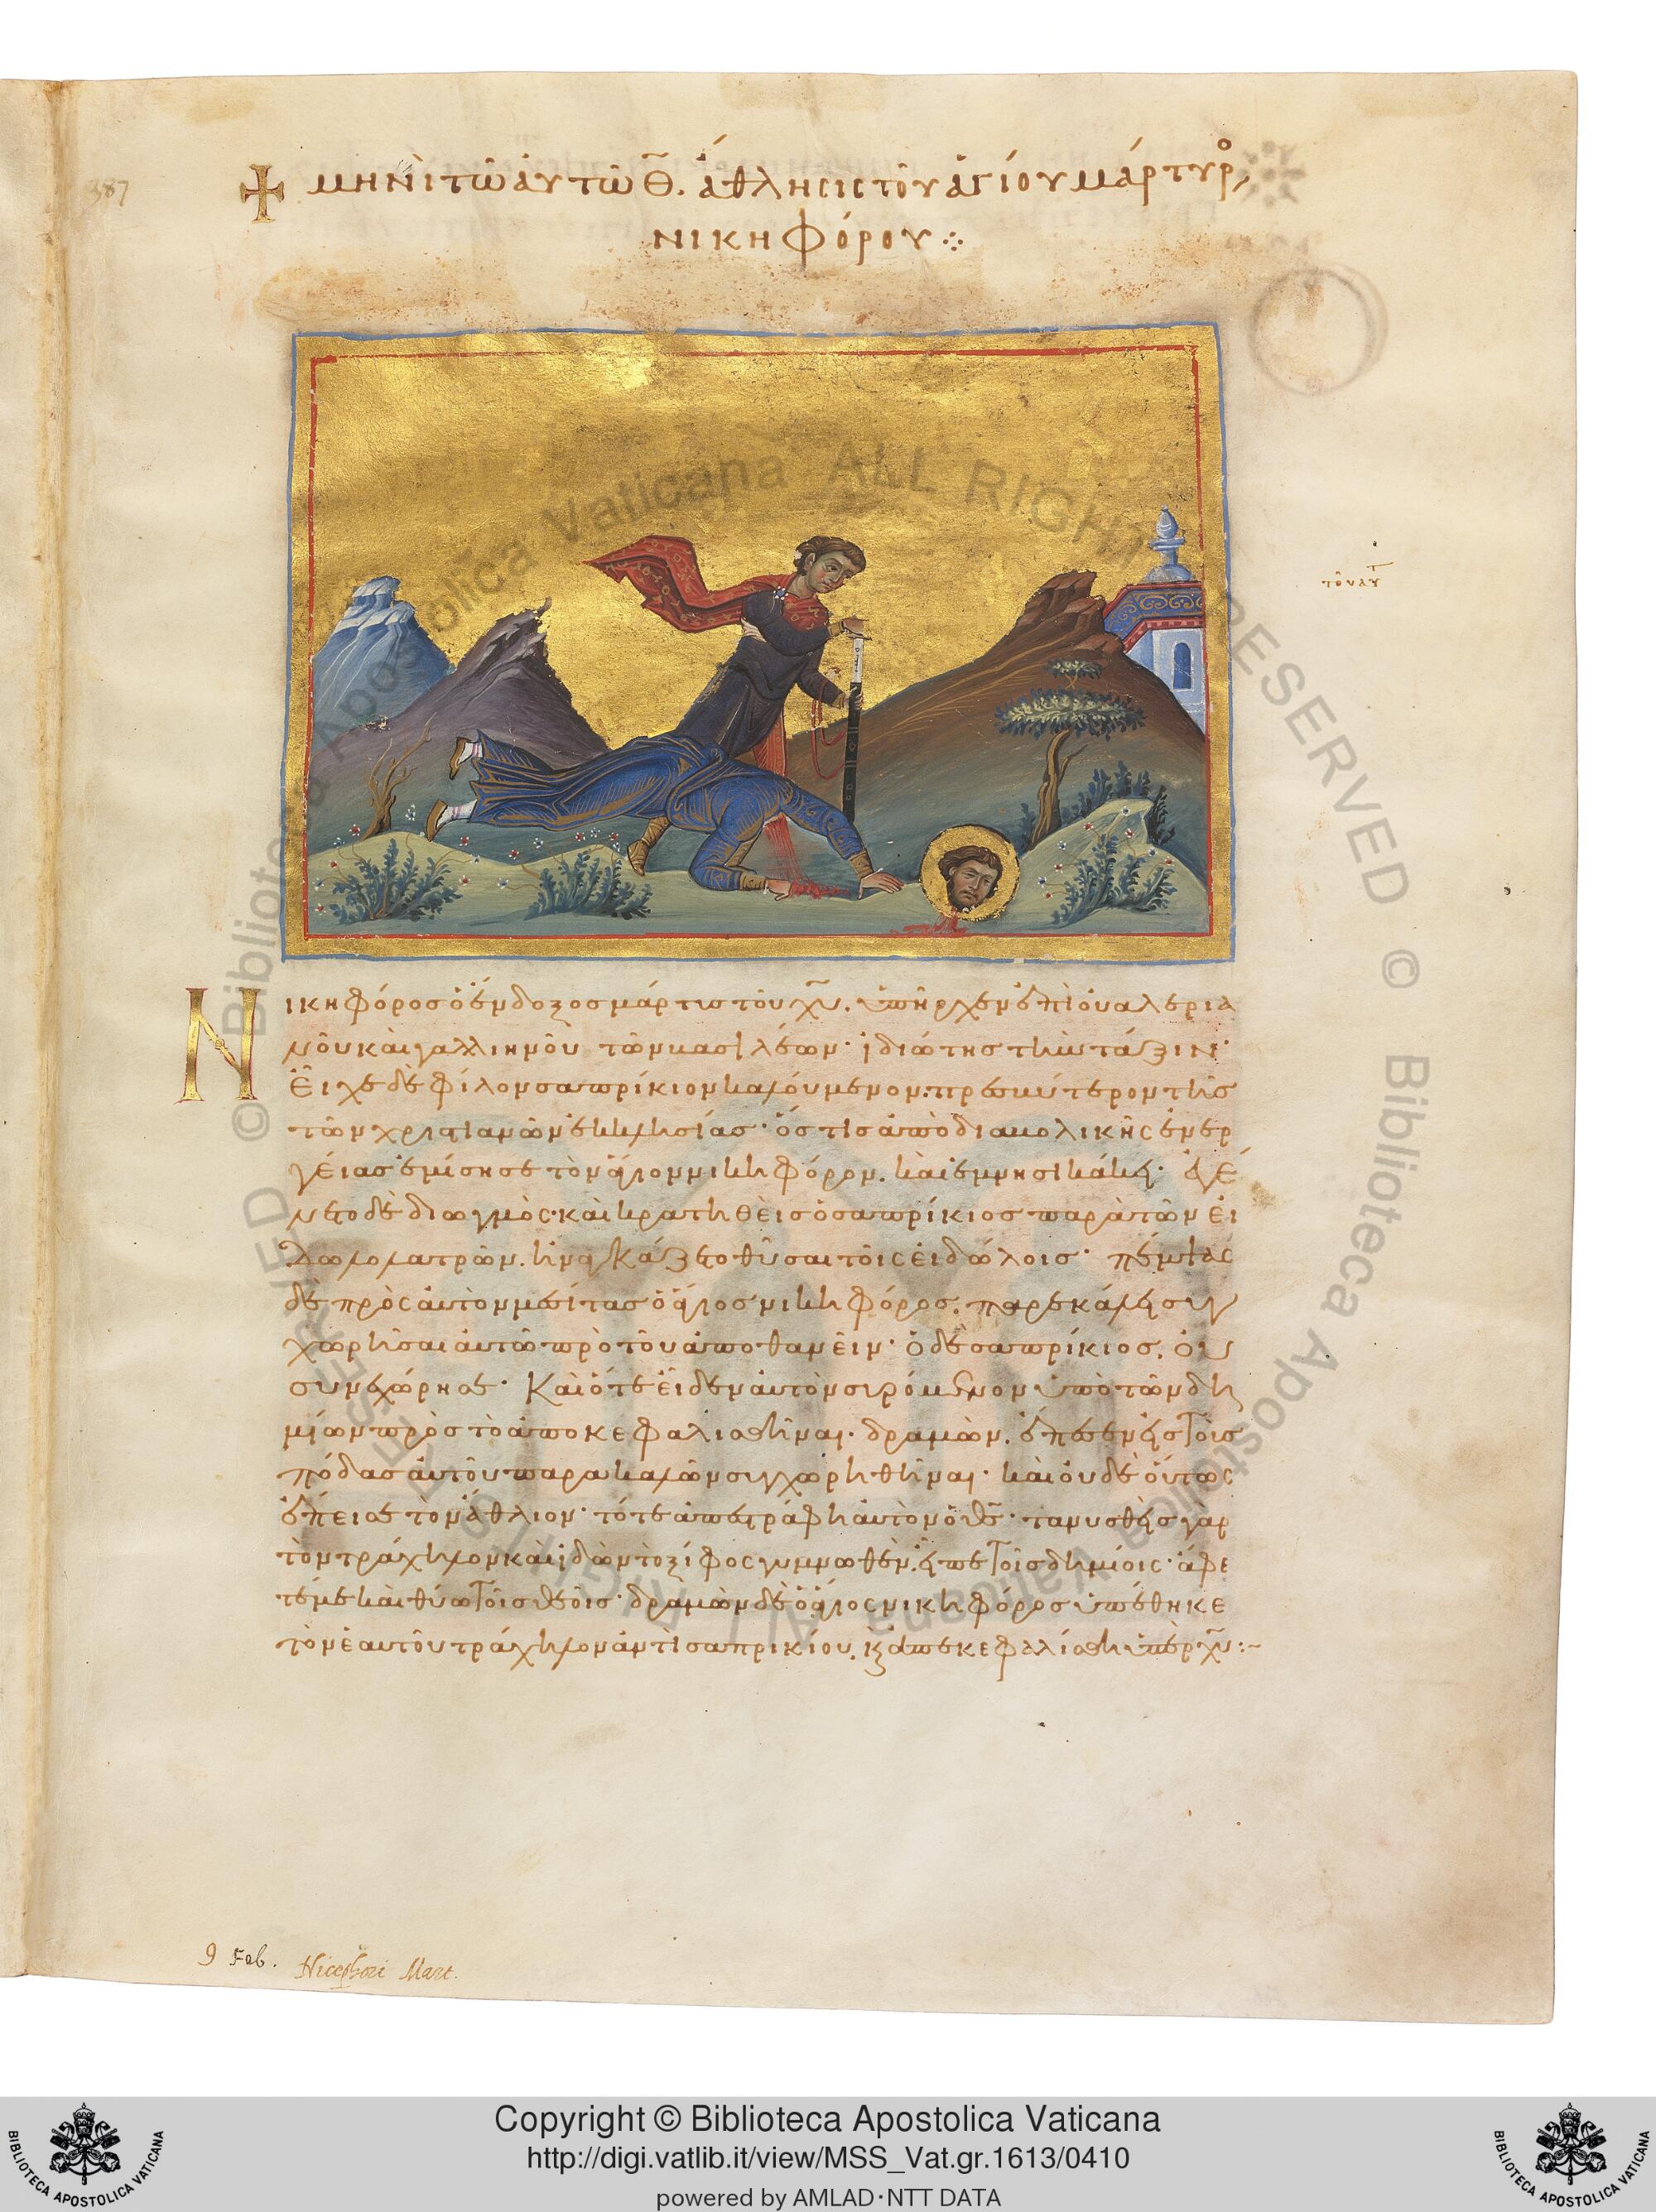 387
✠ μηνὶ τῶ αὐτῶ Θ̅. ἄθλησις τοῦ ἁγίου μάρτυρο,
νικηφόρου ⁘
τοῦ αυτ
Νικηφόρος ὁ ἔνδοξος μάρτυς τοῦ χυ̅. ὑπῆρχεν ἐπὶ οὐαλερια
νοῦ καὶ γαλλιηνοῦ τῶν βασιλέων· ἰδιώτης τὴν τάξιν·
Εἶχε δὲ φίλον σαπρίκιον καλούμενον. πρεσβύτερον τῆς
τῶν χριστιανῶν ἐκκλησίας· ὅστις ἀπὸ διαβολικῆς ἐνερ
γείας ἐμίσησε τὸν ἅγιον νικηφόρον. καὶ ἐμνησικάκει· ἐγέ
νετο δὲ διωγμὸς· καὶ κρατηθεὶς ὁ σαπρίκιος παρὰ τῶν εἰ
δωλολατρῶν. ἠναγκάζετο θῦσαι τοῖς εἰδώλοις· πέμψας
δὲ πρὸς αὐτὸν μεσίτας ὁ ἅγιος νικηφόρος. παρεκάλει συγ
χωρῆσαι αὐτῶ πρὸ τοῦ ἀποθανεῖν· ὁ δὲ σαπρίκιος. οὐ
συνεχώρησε· Καὶ ὅτε εἶδεν αὐτὸν συρόμενον ὑπὸ τῶν δη
μίων πρὸς τὸ ἀποκεφαλισθῆναι· δραμὼν. ἔπεσεν εἰς τοὺς
πόδας αὐτοῦ παρακαλῶν συγχωρηθῆναι· καὶ οὐδὲ οὕτως
ἔπεισε τὸν ἄθλιον· τότε ἀπεστράφη αὐτὸν ὁ θς̅· τανυσθεὶς γὰρ
τὸν τράχηλον καὶ ἰδὼν τὸ ξίφος γυμνωθὲν. εἶπε τοῖς δημίοις· ἄφε
τέ με καὶ θύω τοῖς θεοῖς· δραμὼν δὲ ὁ ἅγιος νικηφόρος ὑπέθηκε
τὸν ἑαυτοῦ τράχηλον ἀντὶ σαπρικίου. κ ἀπεκεφαλίσθη ὑπὲρ χυ̅:~
9 Feb. Nicephori Mart.
© Biblioteca Apostolica Vaticana ALL RIGHTS RESERVED © Biblioteca Apostolica Vaticana ALL RIGHTS RESERVED
Copyright © Biblioteca Apostolica Vaticana
http://digi.vatlib.it/view/MSS_Vat.gr.1613/0410
powered by AMLAD·NTT DATA
BIBLIOTECA APOSTOLICA VATICANA
BIBLIOTECA APOSTOLICA VATICANA